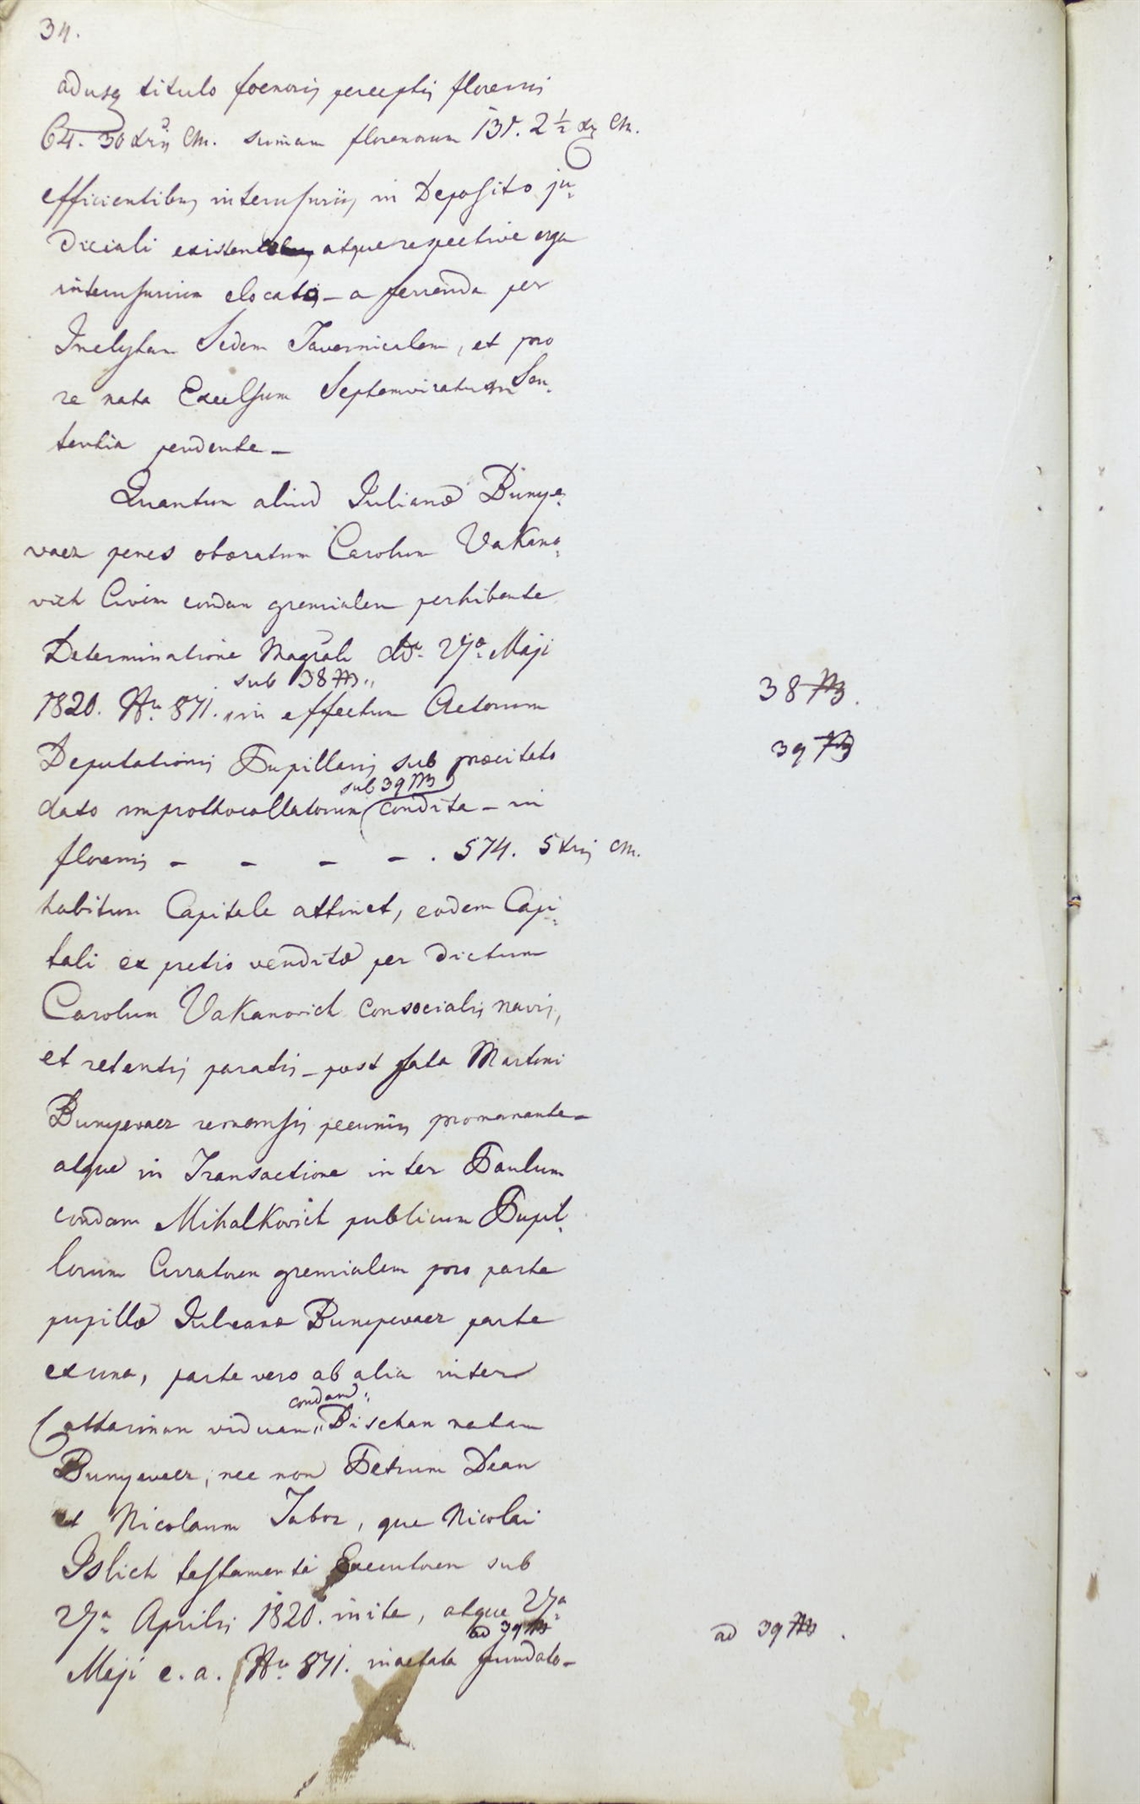 34.
adusq titulo foenoris perceptis florenis
64. 30 xris CM. summam florenorum 131. 2 1/2 xr CM.
efficientibus interusuriis, in Deposito ju-
diciali existentibus, atque respective erga
interusurium elocatis – a ferenda per
Inclytam Sedem Tavernicalem, et pro
re nata Excelsum Septemviratum Sen-
tentia pendente –
Quantum aliud Julianae Bunye-
vacz penes obaeratum Carolum Vakano-
vich Civem condam gremialem perhibente
Determinatione Magrali ddo 27a Maji
sub 38
1820. No 871. in effectum Actorum
38
Deputationis Pupillaris sub praecitato
39
sub 39
dato improthocollatorum condita – in
florenis – – – – . 574. 5 xris CM.
habitum Capitale attinet, eodem Capi-
tali ex pretio venditae per dictum
Carolum Vakanovich consocialis navis,
et retentis paratis – post fata Martini
Bunyevacz remansis pecuniis promanante –
atque in Transactione inter Paulum
condam Mihalkovich publicum Pupil-
lorum Curatorem gremialem pro parte
pupillae Julianae Bunyevacz parte
ex una, parte vero ab alia inter
condam
Cattarinam viduam Dischan natam
Bunyevacz, nec non Petrum Dean
et Nicolaum Tabor, que Nicolai
Islich testamenti Executorem sub
27a Aprilis 1820. inita, atque 27a
ad 39
ad 39
Maji e. a. No 871. inactata fundato –